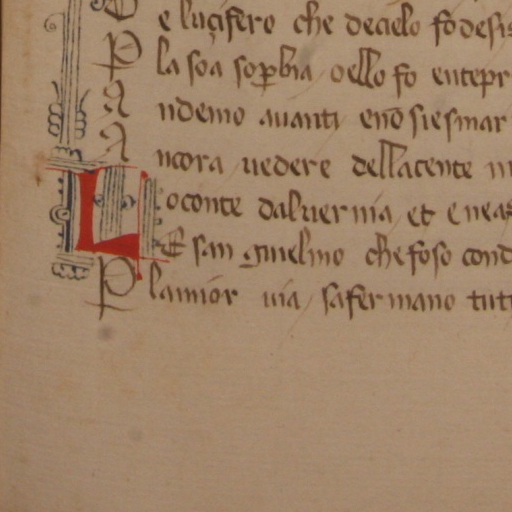 E luçifero che decielo fo desi
P la soa soꝑbia oello fo entepr
A ndemo auanti enō siesmar
A ncora uedere dellacente m
L oconte daluernia et enea
E san gujelmo che foso cond
P lamior uia safermano tut